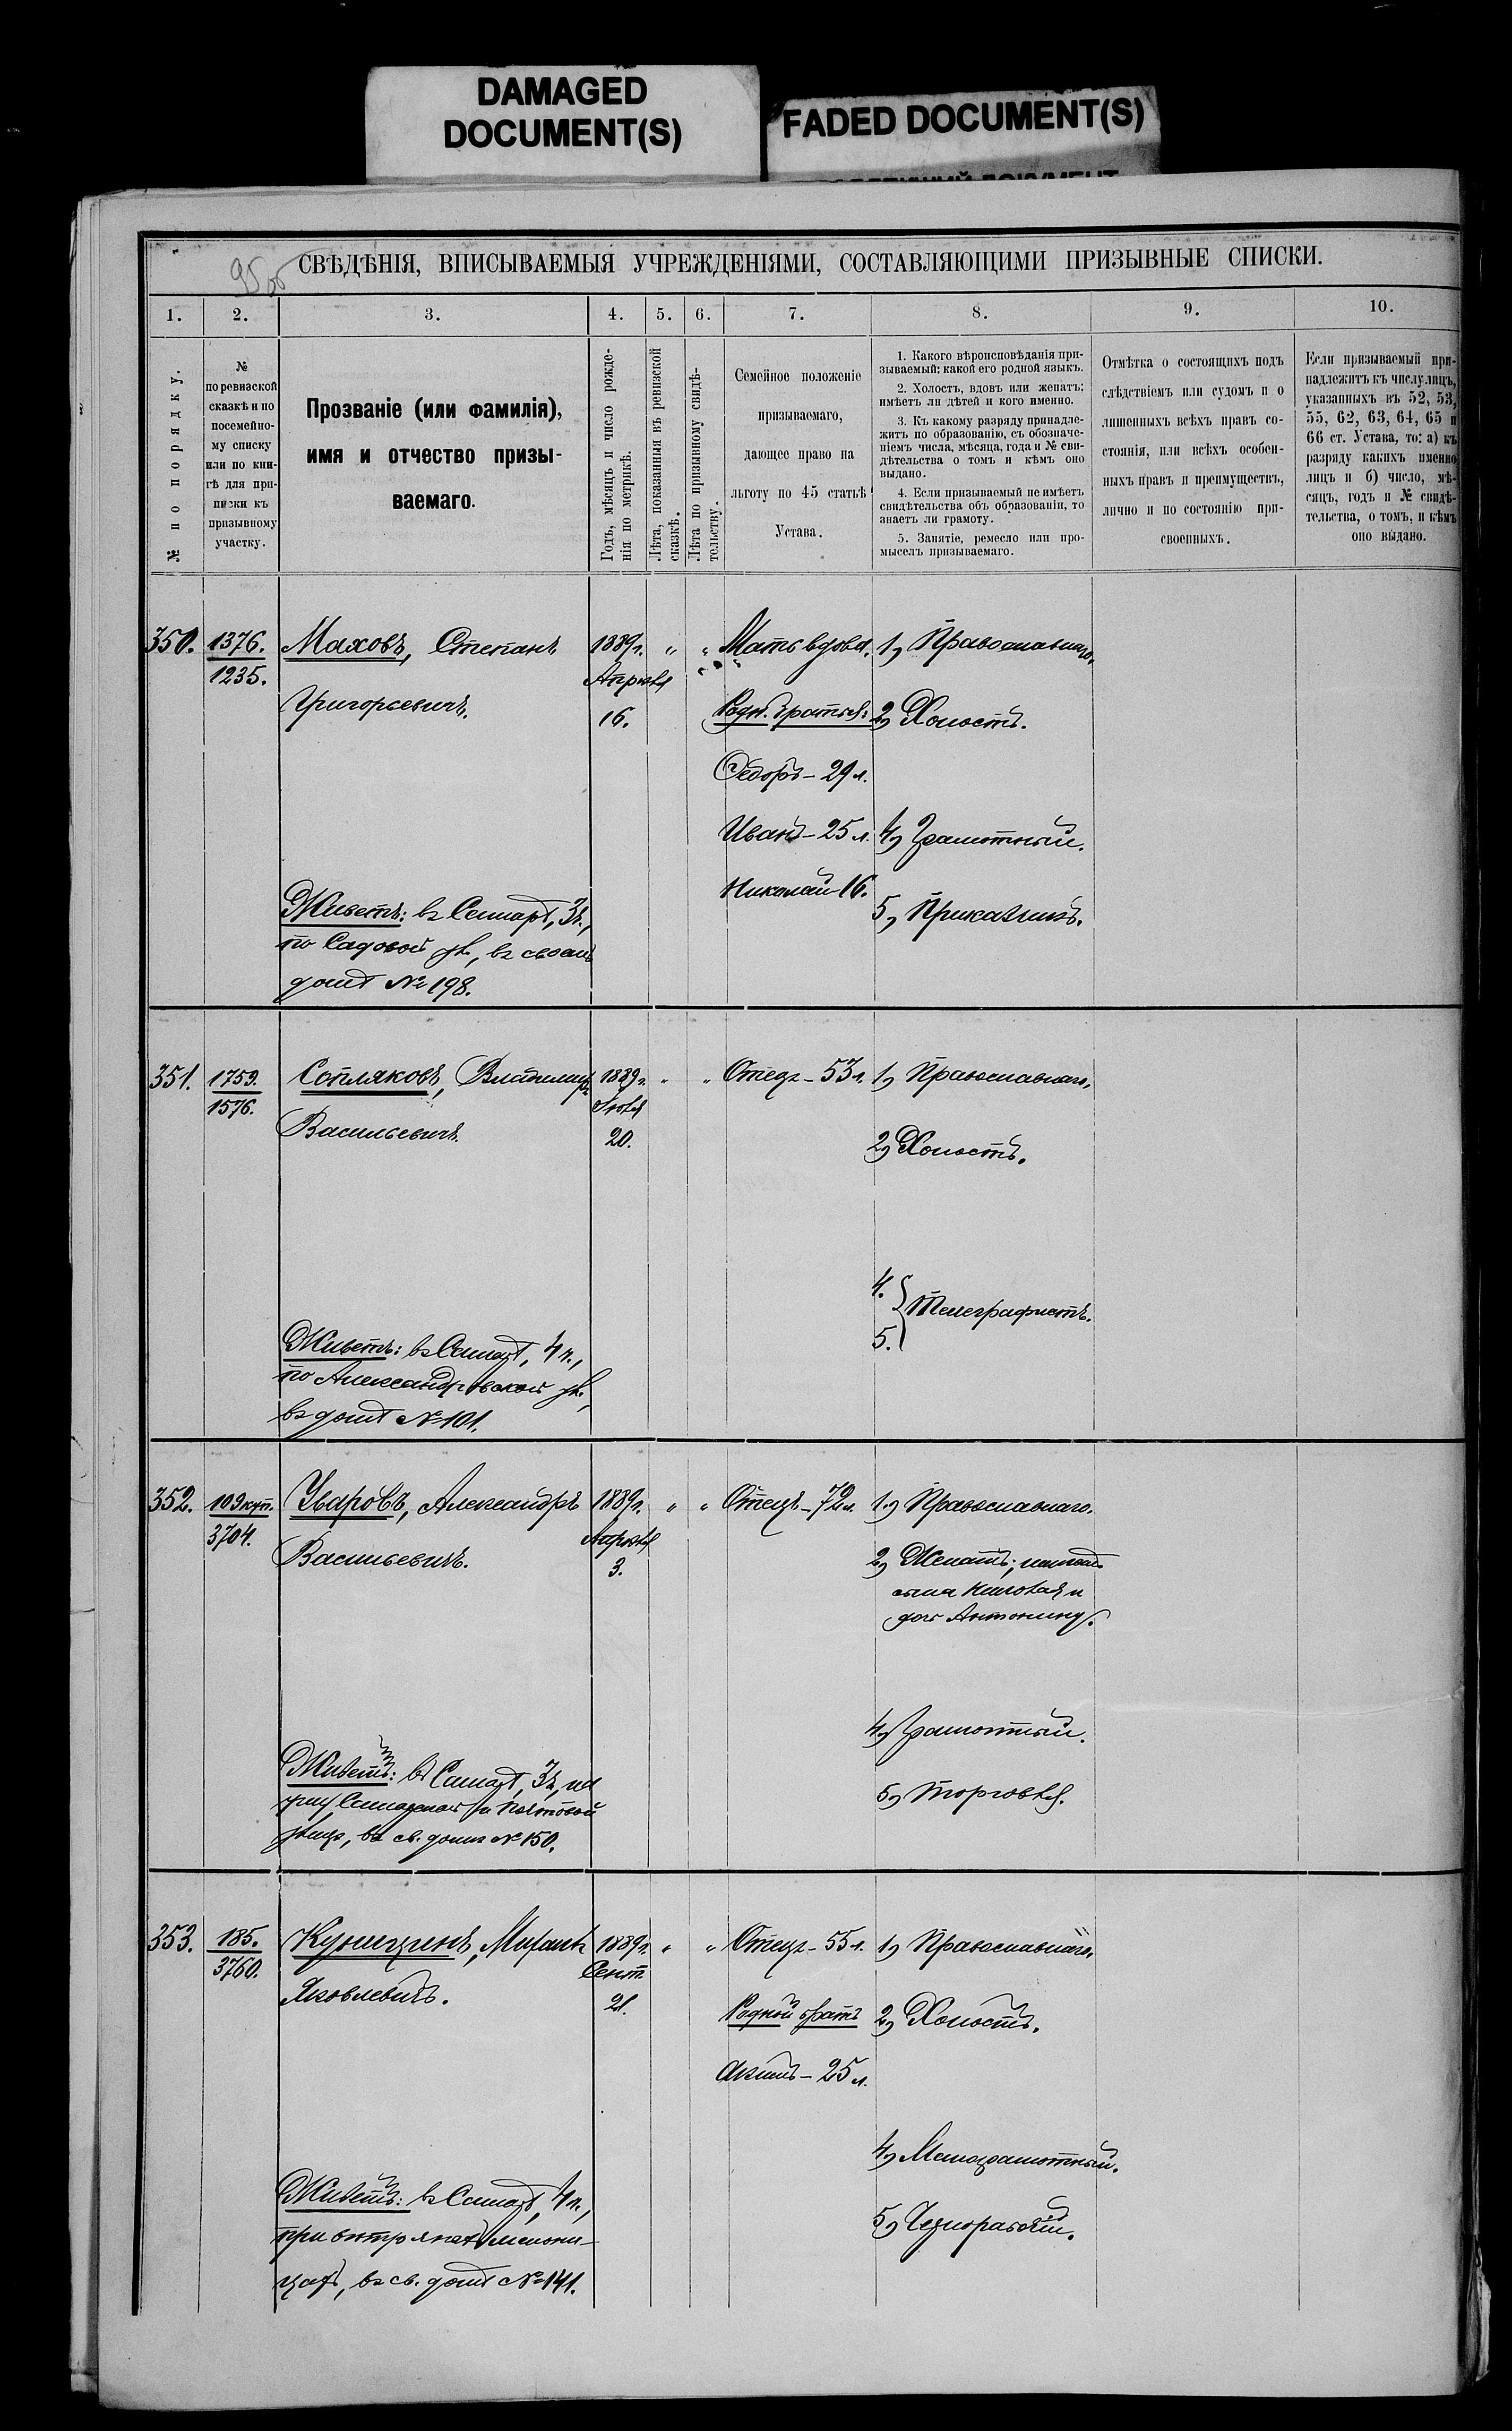 DAMAGED
DOCUMENT(S)
FADED DOCUMENT(S)
95об
СВѢДѢНІЯ, ВПИСЫВАЕМЫЯ УЧРЕЖДЕНІЯМИ, СОСТАВЛЯЮЩИМИ ПРИЗЫВНЫЕ СПИСКИ.
1. 2. 3. 4. 5. 6. 7. 8. 9. 10.
№ по порядку.
№
по ревизской
сказкѣ и по
посемейно-
му списку
или по кни-
гѣ для при-
писки къ
призывному
участку.
Прозваніе (или фамилія),
имя и отчество призы-
ваемаго.
Годъ, мѣсяцъ и число рожде-
нія по метрикѣ.
Лѣта, показанныя въ ревизской
сказкѣ.
Лѣта по призывному свидѣ-
тельству.
Семейное положеніе
призываемаго,
дающее право на
льготу по 45 статьѣ
Устава.
1. Какого вѣроисповѣданія при-
зываемый; какой его родной языкъ.
2. Холостъ, вдовъ или женатъ;
имѣетъ ли дѣтей и кого именно.
3. Къ какому разряду принадле-
житъ по образованію, съ обозначе-
ніемъ числа, мѣсяца, года и № сви-
дѣтельства о томъ и кѣмъ оно
выдано.
4. Если призываемый не имѣетъ
свидѣтельства объ образованіи, то
знаетъ ли грамоту.
5. Занятіе, ремесло или про-
мыселъ призываемаго.
Отмѣтка о состоящихъ подъ
слѣдствіемъ или судомъ и о
лишенныхъ всѣхъ правъ со-
стоянія, или всѣхъ особен-
ныхъ правъ и преимуществъ,
лично и по состоянію при-
своенныхъ.
Если призываемый при-
надлежитъ къ числу лицъ,
указанныхъ въ 52, 53,
55, 62, 63, 64, 65 и
66 ст. Устава, то: а) къ
разряду какихъ именно
лицъ и б) число, мѣ-
сяцъ, годъ и № свидѣ-
тельства, о томъ, и кѣмъ
оно выдано.
350. 1376. Маховъ, Степанъ 1889г. " " Мать вдова. 1) Православнаго.
1235. Апрѣля
Григорьевичъ. 16. Родн. братья: 2) Холостъ.
Ѳедоръ - 29 л.
Иванъ - 25 л. 4) Грамотный.
Николай - 16. 5) Прикащикъ.
Живетъ: въ Самарѣ, 3ч.,
по Садовой ул., въ своемъ
домѣ № 198.
351. 1759. Сопляковъ, Владиміръ 1889г. " " Отецъ - 53 л. 1) Православнаго,
1576. Іюля
Васильевичъ. 20. 2) Холостъ.
4.
Телеграфистъ.
5.
Живетъ: въ Самарѣ, 4 ч.,
по Александровской ул.,
въ домѣ № 101.
352. 109 куп. Уваровъ, Александръ 1889г. " " Отецъ - 72 л. 1) Православнаго.
3704. Апрѣля
Васильевичъ. 3. 2) Женатъ; имѣетъ
сына Николая и
дочь Антонину.
4) Грамотный.
5) Торговля.
Живетъ: въ Самарѣ, 3ч, на
углу Самарской и Почтовой
улицъ, въ св. домѣ № 150.
353. 185. Михаилъ 1889г. " " Отецъ - 55 л. 1) Православнаго.
3760. Сент.
Яковлевичъ. 21. Родной братъ 2) Холостъ.
Акимъ - 25 л.
4) Малограмотный.
5) Чернорабочій.
Живетъ: въ Самарѣ, 4 ч.,
при вѣтряныхъ мельни-
цахъ, въ св. домѣ № 141.